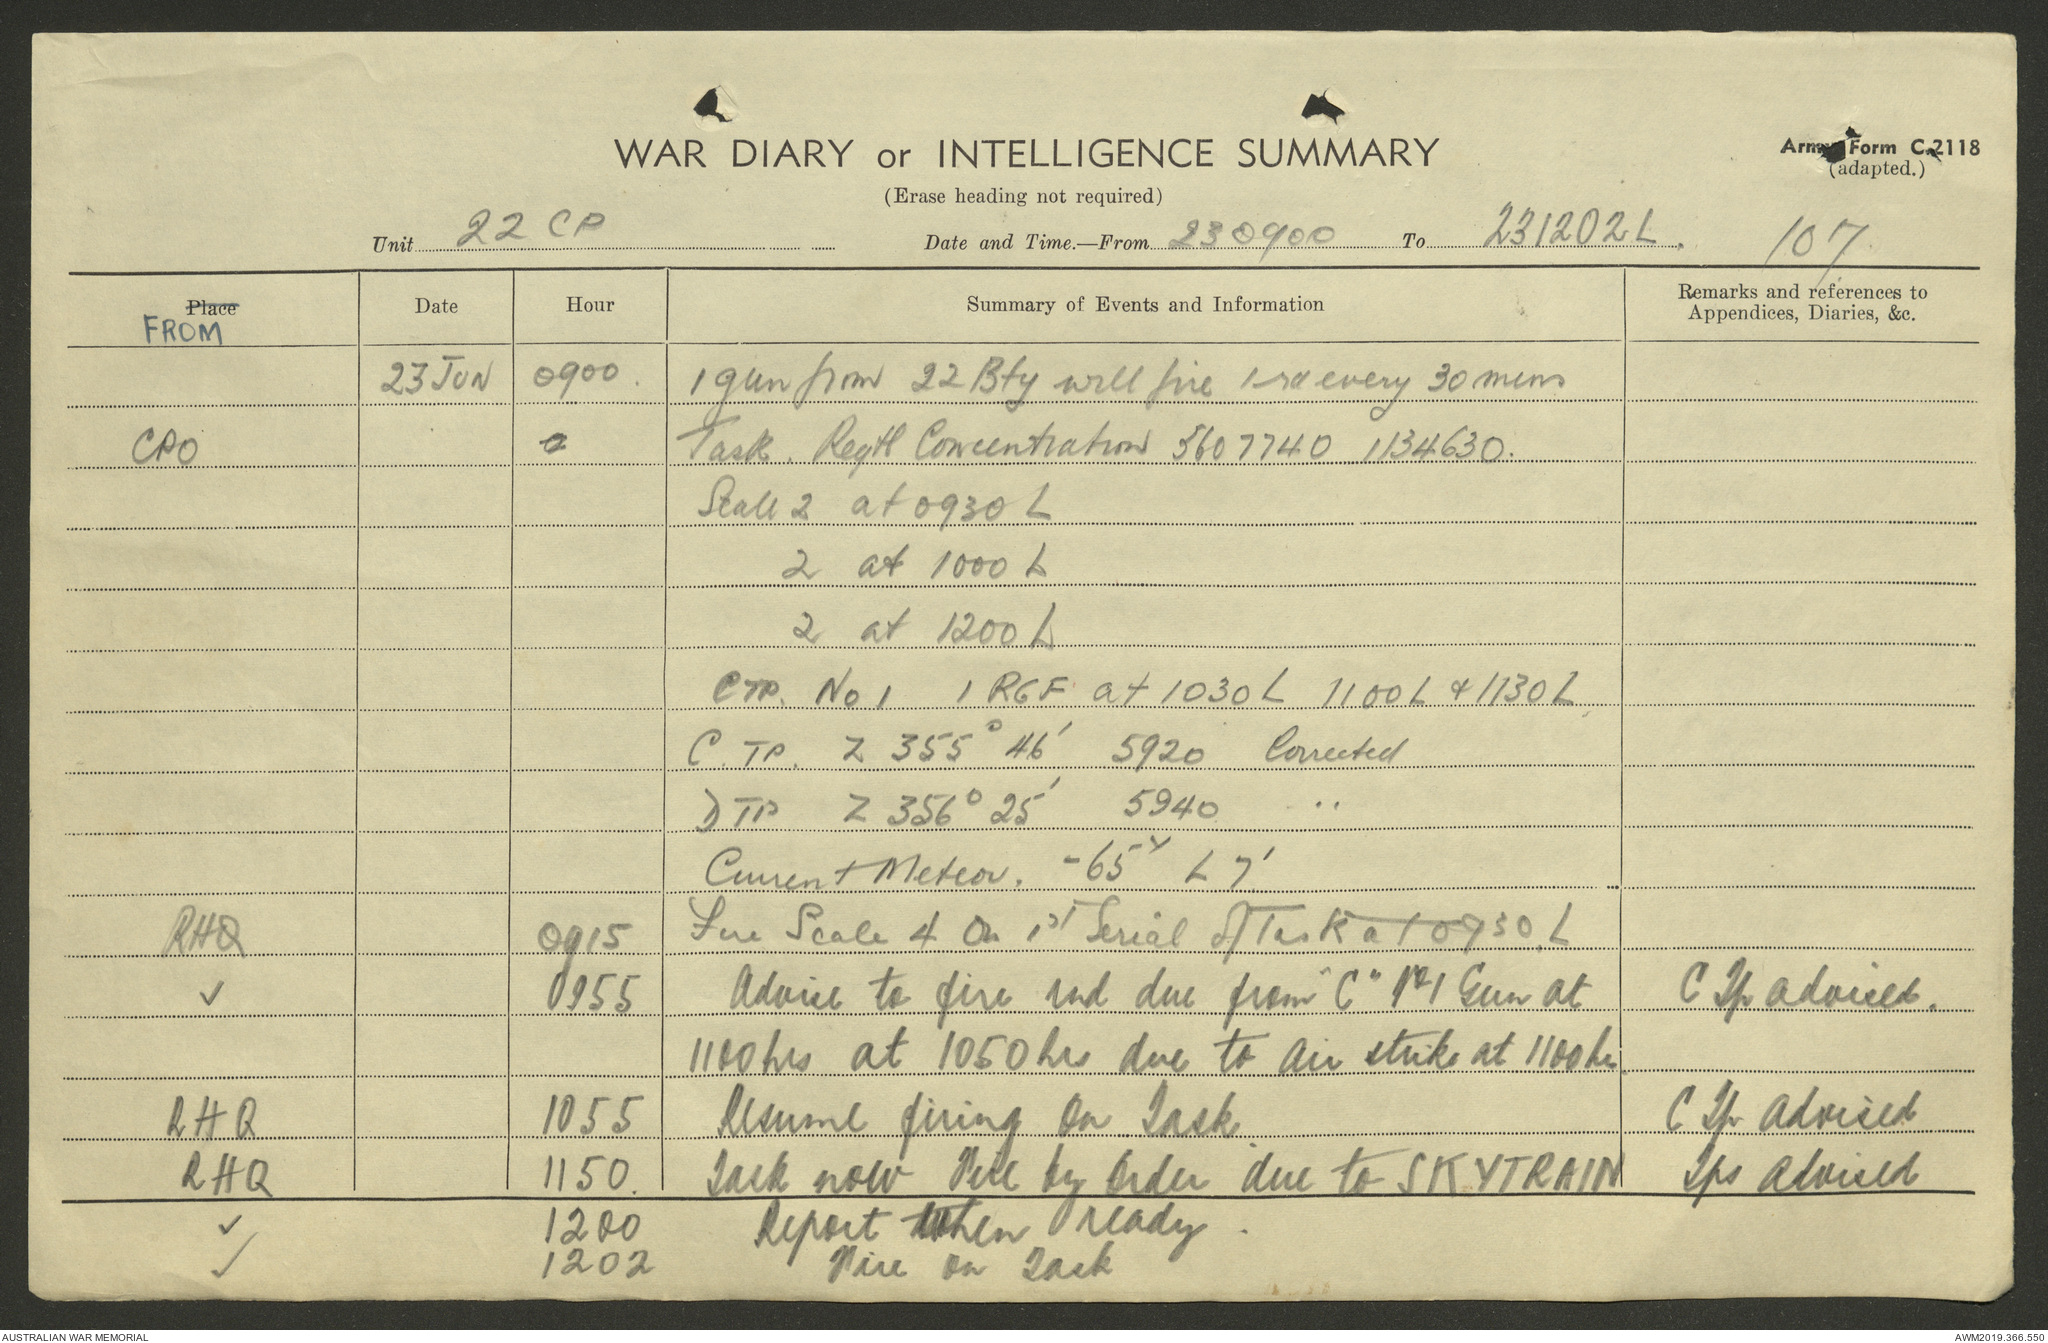 WAR DIARY or INTELLIGENCE SUMMARY
Army Form C.2118
(adapted.)
(Erase heading not required)
Unit 22 CP Date and Time.—From 230900 To 231202L. 107
Place Date Hour Summary of Events and Information Remarks and references to
Appendices, Diaries, &c.
FROM
23 JUN 0900. 1 gun from 22 Bty will fire 1 rd every 30 mins
CPO Task. Regtl Concentration 5607740 1134630.
Scale 2 at 0930 L
2 at 1000 L
2 at 1200 L
C TP. No 1 1 RGF at 1030 L 1100 L & 1130 L
C. TP. Z 355° 46' 5920 Corrected
D TP Z 356° 25' 5940 "
Current Meteor. -65ˣ L 7'
RHQ 0915 Fire Scale 4 On 1st Serial of Task at 0930. L
✓ 0955 Advise to fire rnd due from "C" No 1 Gun at C Tp advised.
1100 hrs at 1050 hrs due to air strike at 1100 hr.
RHQ 1055 Resume firing On Task. C Tp Advised
RHQ 1150. Task now Fire by Order due to SKYTRAIN Tps Advised
✓ 1200 Report When ready.
✓ 1202 Fire on Task
AUSTRALIAN WAR MEMORIAL AWM2019.366.550